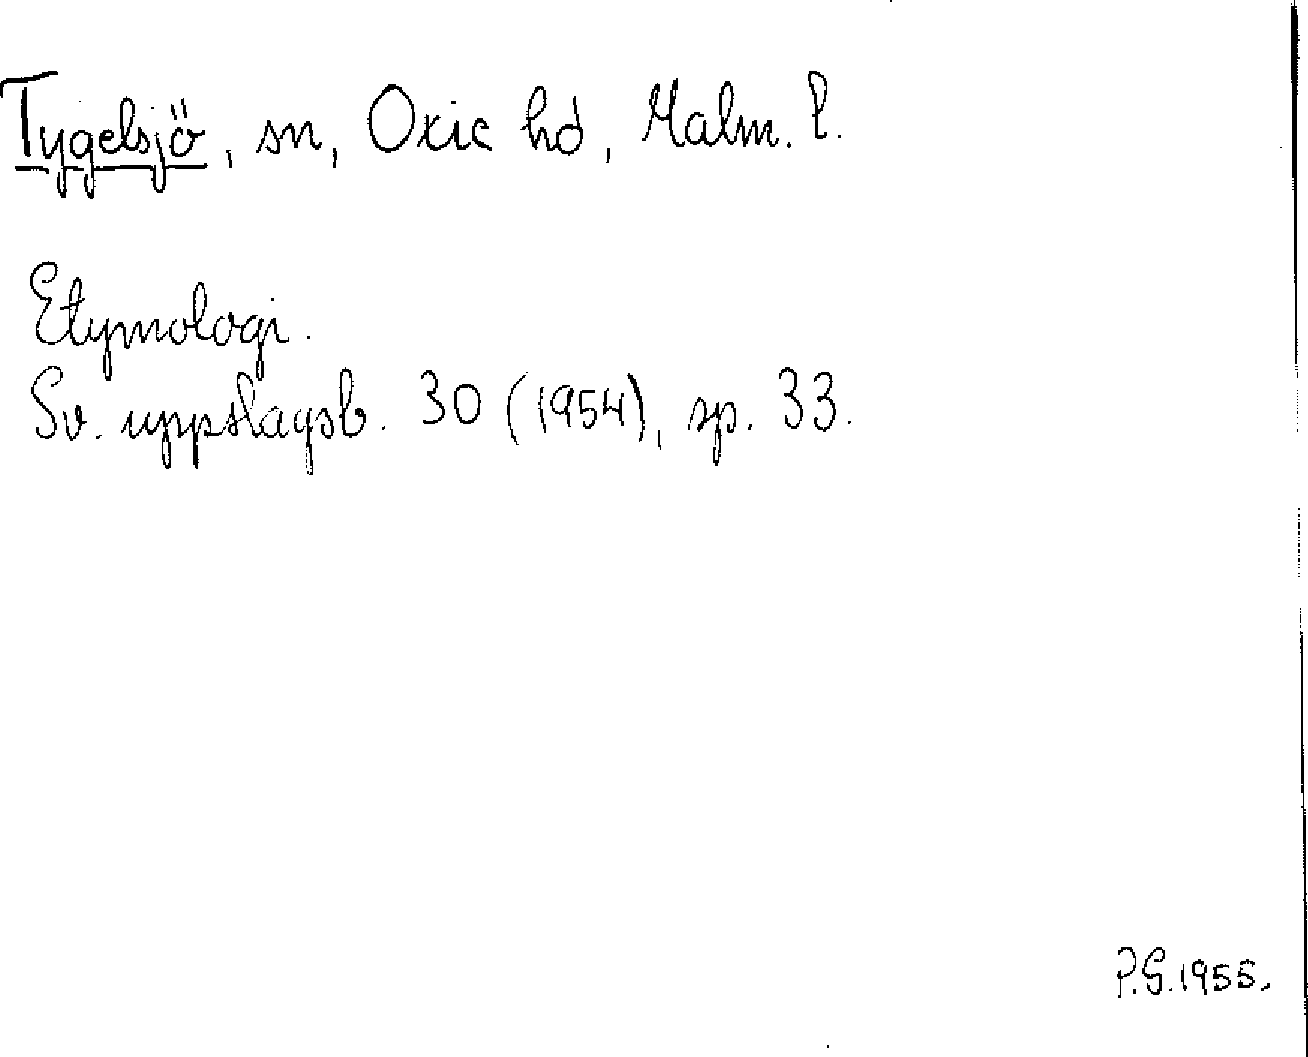 Tygelsjö, sn, Oxie hd, Malm. l.
Etymologi.
Sv. uppslagsb. 30 (1954), sp. 33.
P.G. 1955.